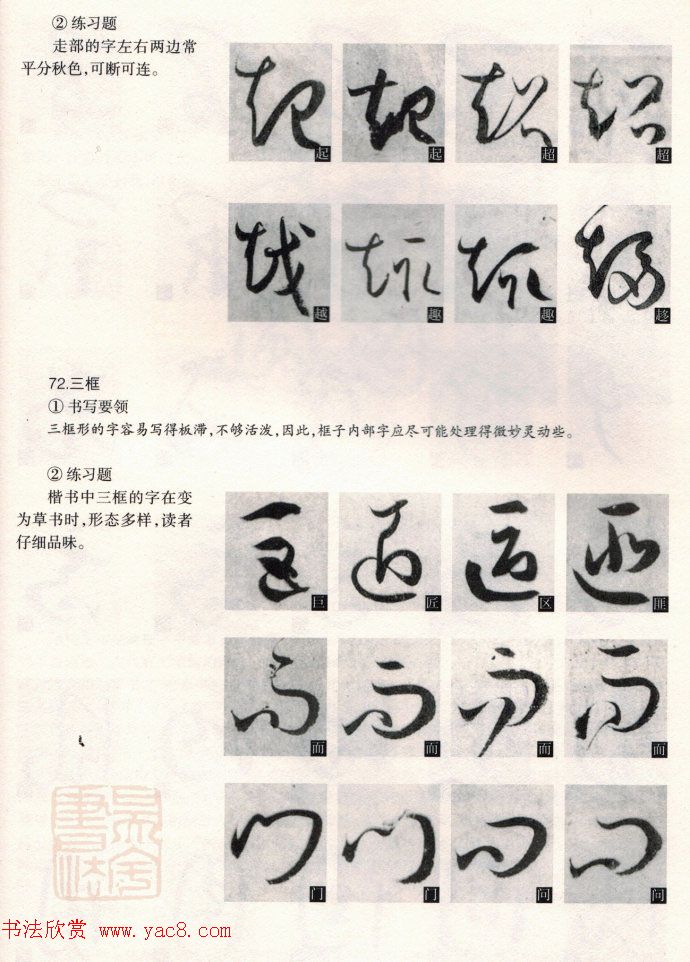 ② 练习题
走部的字左右两边常
平分秋色，可断可连。
起 起 超 超
越 趣 趣 趁
72.三框
① 书写要领
三框形的字容易写得板滞，不够活泼，因此，框子内部字应尽可能处理得微妙灵动些。
② 练习题
楷书中三框的字在变
为草书时，形态多样，读者
仔细品味。
巨 匠 区 匪
而 而 而 而
门 门 问 问
书法欣赏 www.yac8.com